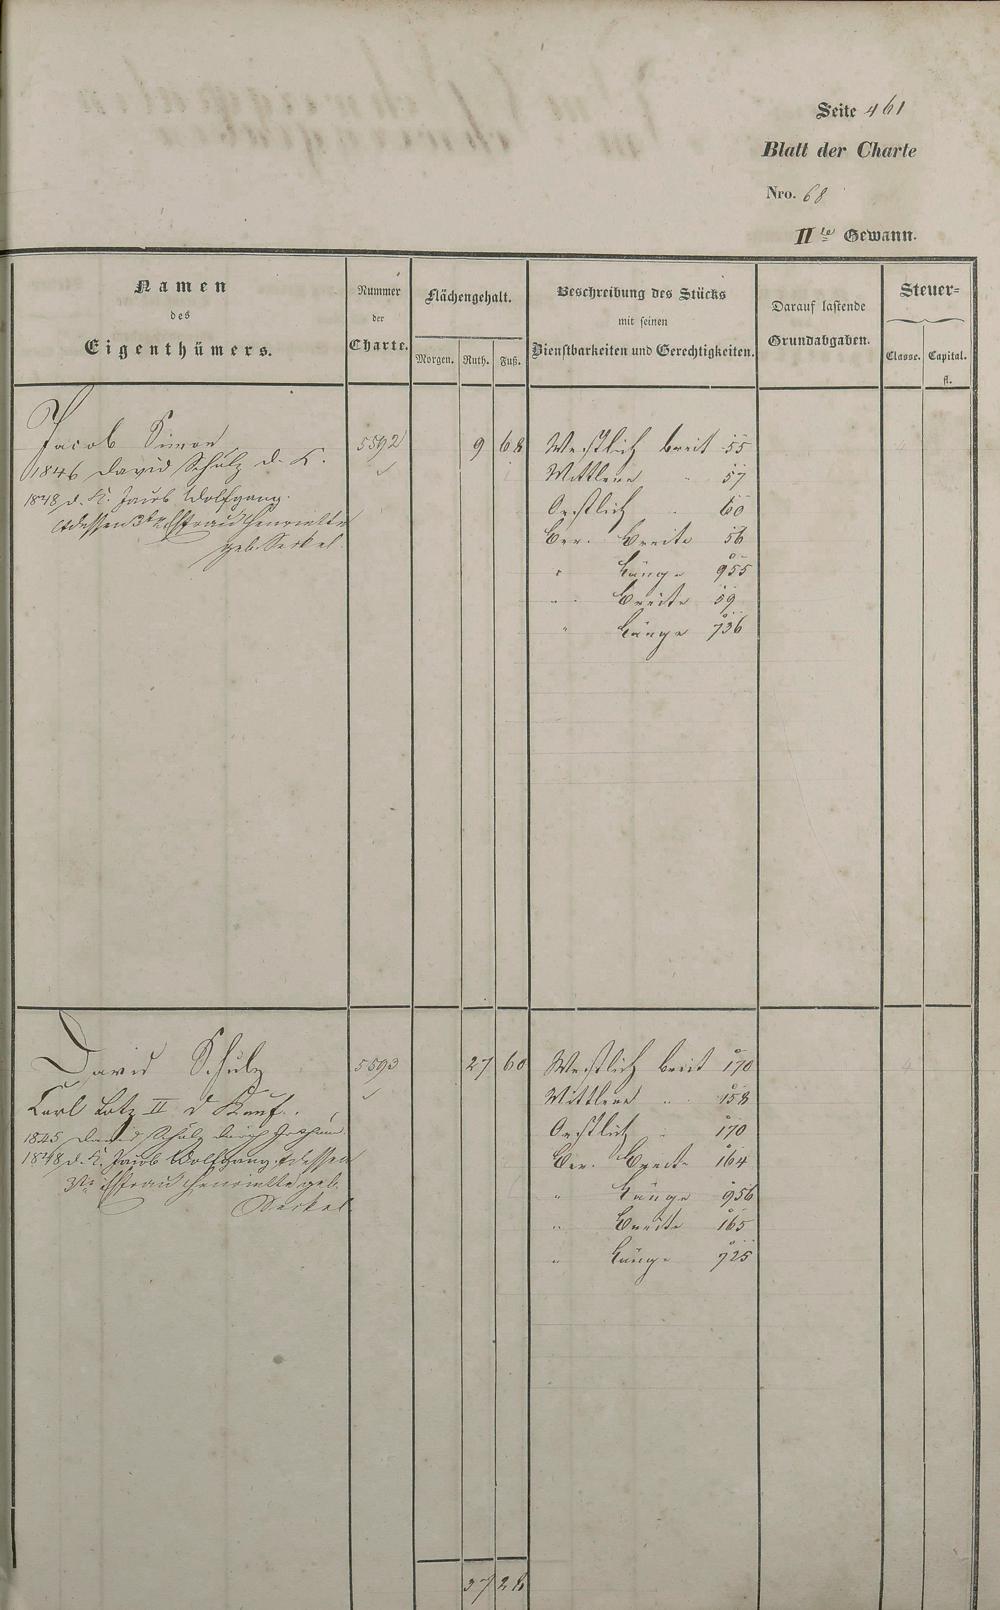 Seite 461
Blatt der Charte
Nro. 68
II te Gewann.
Namen
des
Eigenthümers.
Nummer
der
Charte.
Flächengehalt.
Morgen. Ruth. Fuß.
Beschreibung des Stücks
mit seinen
Dienstbarkeiten und Gerechtigkeiten.
Darauf lastende
Grundabgaben.
Steuer-
Classe. Capital.
fl.
Jacob Simon 5592 9 68 Westlich breit 55
1846 David Schulz d. K.
Mittlere " 57
1848 d. K. Jacob Wolfgang.
Oestlich " 60
Ehefrau Henriette
Ber. Breite 56
geb. Seckel.
" Länge 955
" Breite 59
" Länge 736
David Schulz 5593 27 60 Westlich breit 170
Carl Lotz II d Kauf.
Mittlere " 158
1845 David Schulz durch
Oestlich " 170
1848 d. K. Jacob Wolfgang. dessen
Ber. Breite 164
3te Ehefrau Henriette geb.
" Länge 956
Seckel.
" Breite 165
" Länge 725
37 28